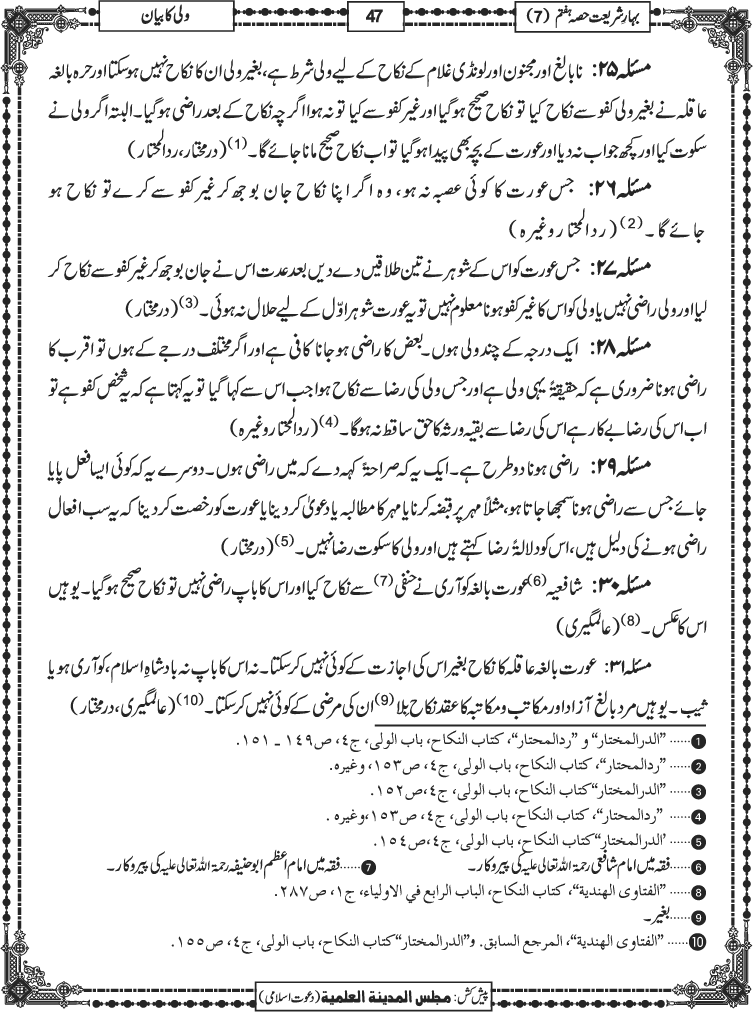 بہارِ شریعت حصہ ہفتم (7)
47
ولی کا بیان
مسئلہ ۲۵: نابالغ اور مجنون اور لونڈی غلام کے نکاح کے لیے ولی شرط ہے، بغیر ولی ان کا نکاح نہیں ہوسکتا اور حرہ بالغہ
عاقلہ نے بغیر ولی کفو سے نکاح کیا تو نکاح صحیح ہوگیا اور غیر کفو سے کیا تو نہ ہوا اگرچہ نکاح کے بعد راضی ہوگیا۔ البتہ اگر ولی نے
سکوت کیا اور کچھ جواب نہ دیا اور عورت کے بچہ بھی پیدا ہوگیا تو اب نکاح صحیح مانا جائے گا۔ (1) (درمختار، ردالمحتار)
مسئلہ ۲۶: جس عورت کا کوئی عصبہ نہ ہو، وہ اگر اپنا نکاح جان بوجھ کر غیر کفو سے کرے تو نکاح ہو
جائے گا۔ (2) (ردالمحتار وغیرہ)
مسئلہ ۲۷: جس عورت کو اس کے شوہر نے تین طلاقیں دے دیں بعد عدت اس نے جان بوجھ کر غیر کفو سے نکاح کر
لیا اور ولی راضی نہیں یا ولی کو اس کا غیر کفو ہونا معلوم نہیں تو یہ عورت شوہر اوّل کے لیے حلال نہ ہوئی۔ (3) (درمختار)
مسئلہ ۲۸: ایک درجہ کے چند ولی ہوں۔ بعض کا راضی ہو جانا کافی ہے اور اگر مختلف درجے کے ہوں تو اقرب کا
راضی ہونا ضروری ہے کہ حقیقۃً یہی ولی ہے اور جس ولی کی رضا سے نکاح ہوا جب اس سے کہا گیا تو یہ کہتا ہے کہ یہ شخص کفو ہے تو
اب اس کی رضا بے کار ہے اس کی رضا سے بقیہ ورثہ کا حق ساقط نہ ہوگا۔ (4) (ردالمحتار وغیرہ)
مسئلہ ۲۹: راضی ہونا دو طرح ہے۔ ایک یہ کہ صراحۃً کہہ دے کہ میں راضی ہوں۔ دوسرے یہ کہ کوئی ایسا فعل پایا
جائے جس سے راضی ہونا سمجھا جاتا ہو، مثلاً مہر پر قبضہ کرنا یا مہر کا مطالبہ یا دعویٰ کر دینا یا عورت کو رخصت کر دینا کہ یہ سب افعال
راضی ہونے کی دلیل ہیں، اس کو دلالۃً رضا کہتے ہیں اور ولی کا سکوت رضا نہیں۔ (5) (درمختار)
مسئلہ ۳۰: شافعیہ (6) عورت بالغہ کوآری نے حنفی (7) سے نکاح کیا اور اس کا باپ راضی نہیں تو نکاح صحیح ہوگیا۔ یوہیں
اس کا عکس۔ (8) (عالمگیری)
مسئلہ ۳۱: عورت بالغہ عاقلہ کا نکاح بغیر اس کی اجازت کے کوئی نہیں کرسکتا۔ نہ اس کا باپ نہ بادشاہِ اسلام، کوآری ہو یا
ثیب۔ یوہیں مرد بالغ آزاد اور مکاتب و مکاتبہ کا عقد نکاح بِلا (9) ان کی مرضی کے کوئی نہیں کرسکتا۔ (10) (عالمگیری، درمختار)
1 ...... "الدرالمختار" و "ردالمحتار"، كتاب النكاح، باب الولی، ج٤، ص١٤٩ ـ ١٥١.
2 ...... "ردالمحتار"، كتاب النكاح، باب الولی، ج٤، ص١٥٣، وغیرہ.
3 ...... "الدرالمختار" كتاب النكاح، باب الولی، ج٤، ص١٥٢.
4 ...... "ردالمحتار"، كتاب النكاح، باب الولی، ج٤، ص١٥٣، وغیرہ.
5 ...... "الدرالمختار" كتاب النكاح، باب الولی، ج٤، ص١٥٤.
6 ...... فقہ میں امام شافعی رحمۃ اللہ تعالیٰ علیہ کی پیروکار۔ 7 ...... فقہ میں امام اعظم ابوحنیفہ رحمۃ اللہ تعالیٰ علیہ کی پیروکار۔
8 ...... "الفتاوى الهندية"، كتاب النكاح، الباب الرابع في الاولیاء، ج١، ص٢٨٧.
9 ...... بغیر۔
10 ...... "الفتاوى الهندية"، المرجع السابق. و"الدرالمختار" كتاب النكاح، باب الولی، ج٤، ص١٥٥.
پیش کش: مجلس المدینۃ العلمیۃ (دعوت اسلامی)